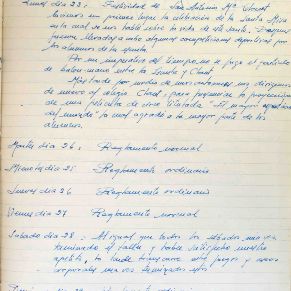 Lunes día 23: Festividad de San Antonio Mª Claret
tuvimos en primer lugar la celebración de la Santa Misa
en la cual se nos habló sobre la vida de este Santo. Después
fueron llevadas a cabo algunas competiciones deportivas por
los alumnos de la escuela.
Por ser imperativo del tiempo no se jugó el partido
de balon-mano entre la Escuela y Claret.
Más tarde por medio de unos nos dirigimos
de nuevo al colegio Claret, para presenciar la proyección
de una película de cine titulada "El mayor espectáculo
del mundo" la cual agradó a la mayor parte de los
alumnos.
Martes día 24: Reglamento normal
Miercoles día 25 Reglamento ordinario
Jueves día 26 Reglamento ordinario
Viernes día 27 Reglamento normal
Sábado día 28: Al igual que todos los sábados, una vez
terminado el taller y haber satisfecho nuestro
apetito, la tarde juegos y aseos
corporales